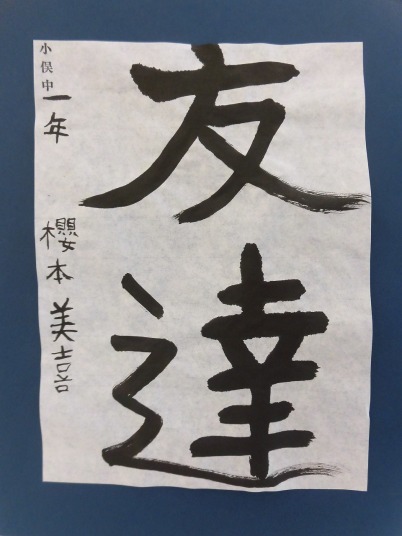 友達
小俣中一年 櫻本美喜